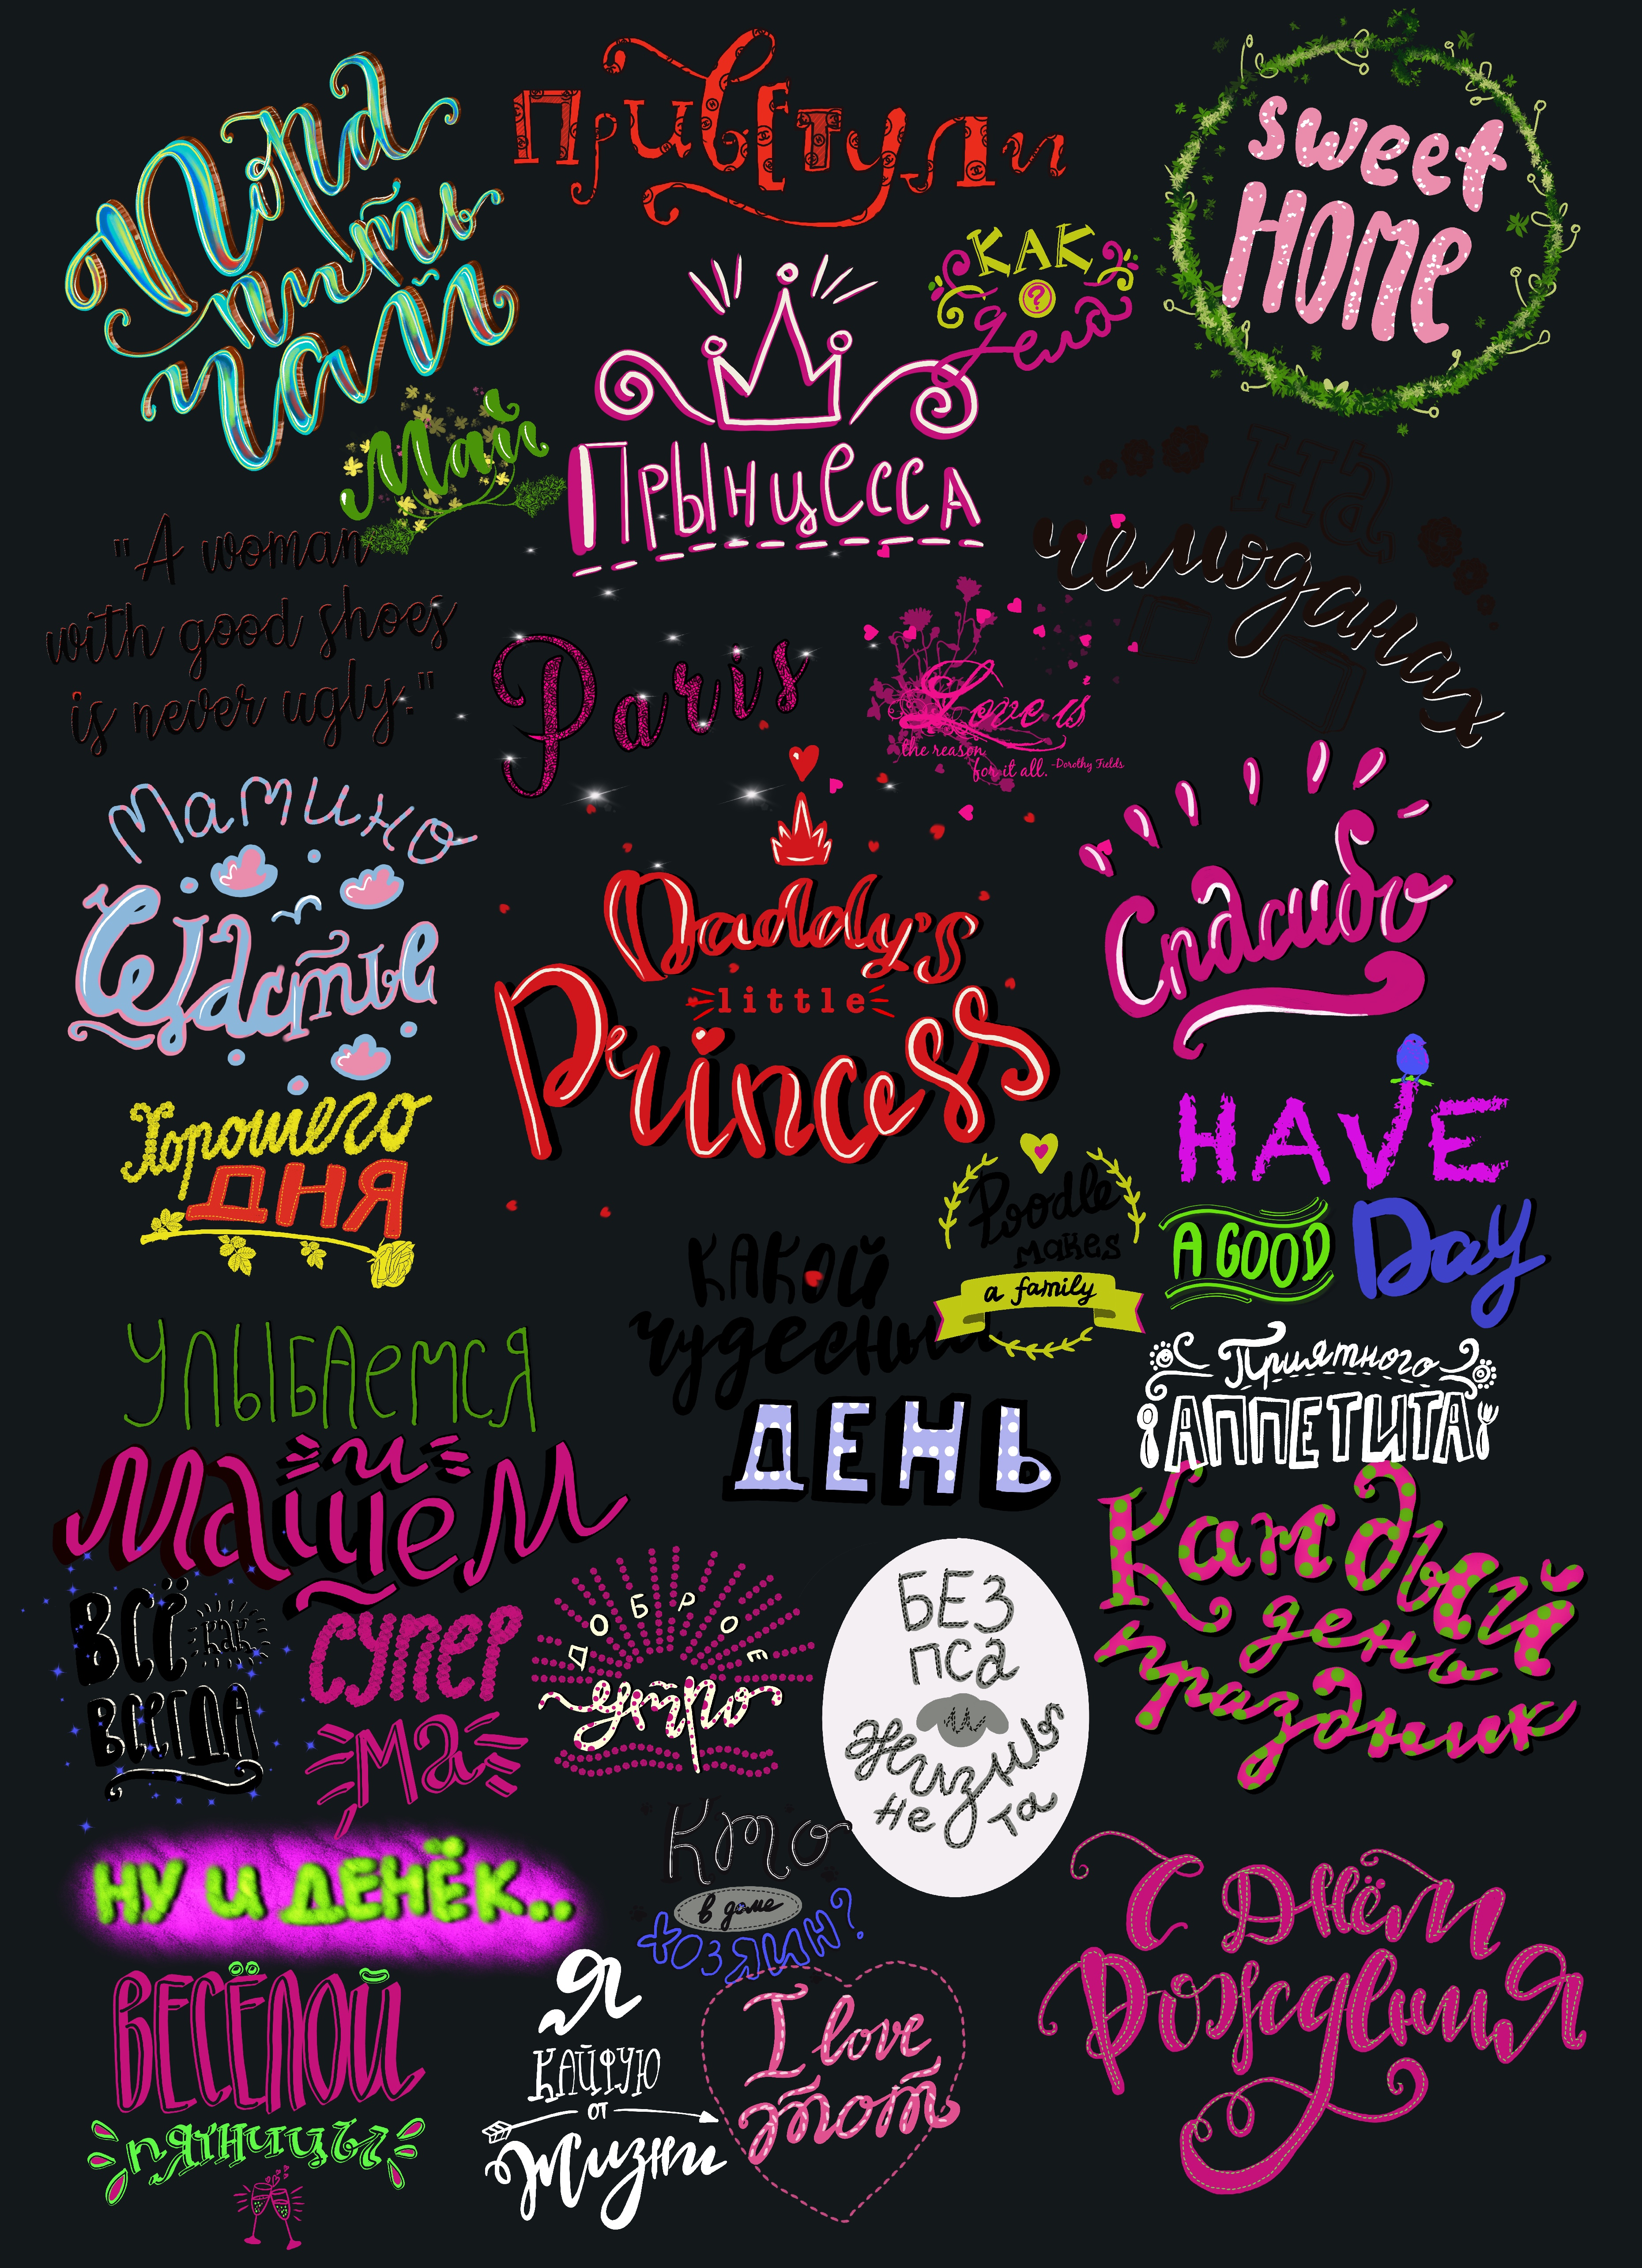 Пора
пить
чай
Приветули
sweet
HOME
КАК
?
дела
Май
ПрЫнцесса
На
чемоданах
"A woman
with good shoes
is never ugly."
Paris
Love is
the reason
for it all. -Dorothy Fields
Мамино
Щастье
Daddy's
little
Princess
Спасибо
Хорошего
ДНЯ
HAVE
A GOOD Day
Poodle
makes
a family
КАКОЙ
чудесный
ДЕНЬ
Приятного
АППЕТИТА
Улыбаемся
и
Машем
Каждый
день
праздник
ВСЁ как
ВСЕГДА
СУПЕР
Ма
ДОБРОЕ
утро
БЕЗ
пса
и
жизнь
не та
НУ И ДЕНЁК..
Кто
в доме
ХОЗЯИН?
С Днём
Рождения
ВЕСЁЛОЙ
пятницы
Я
КАЙФУЮ
ОТ
Жизни
I love
тот